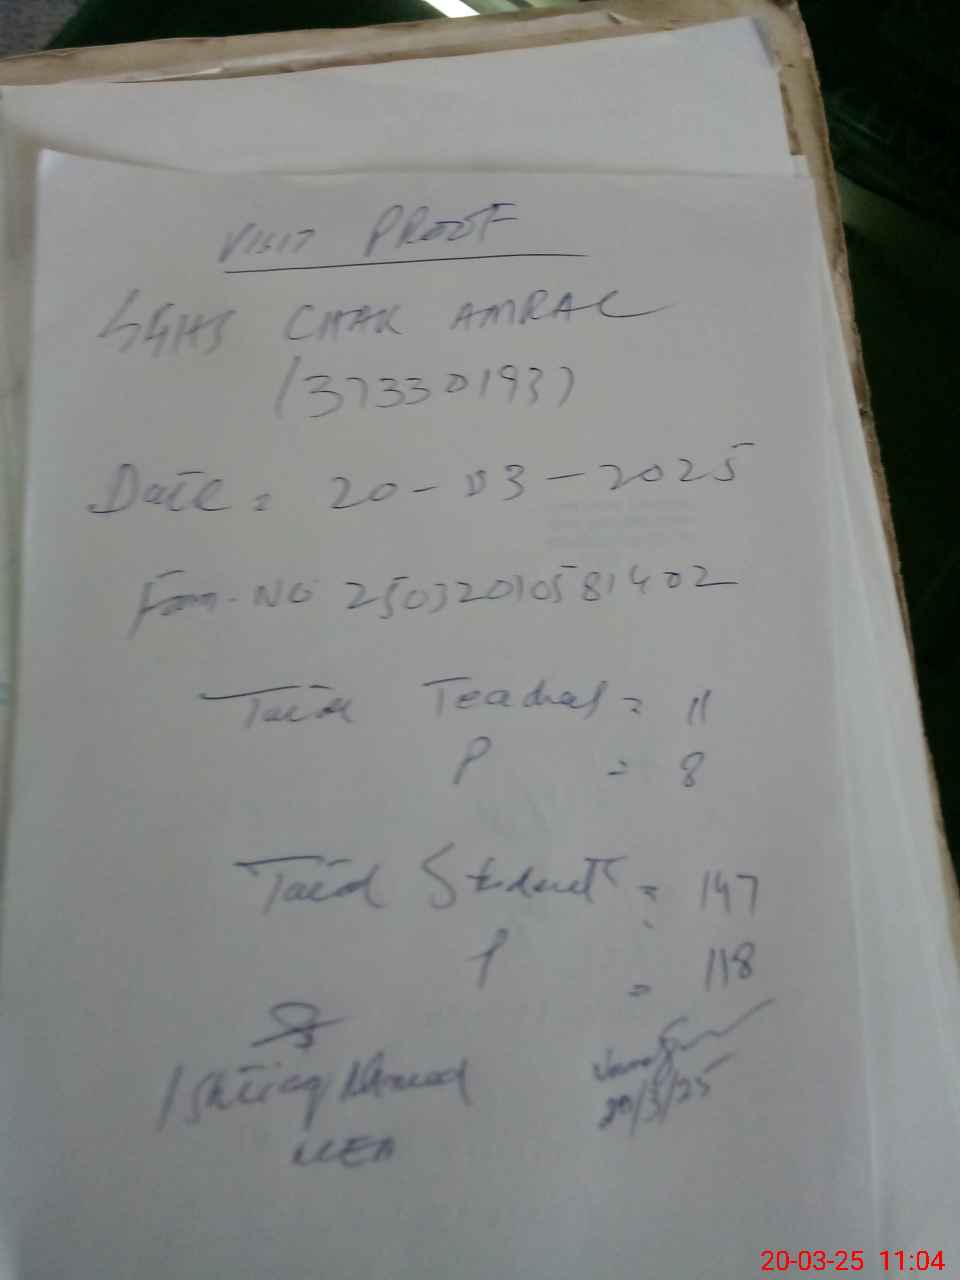 VISIT PROOF
GGHS CHAK AMRAL
(37330193)
Date = 20-03-2025
Form-No 25032010581402
Total Teachers = 11
P = 8
Total Students = 147
P = 118
Ishtiaq Ahmed
MEA
20/3/25
20-03-25 11:04